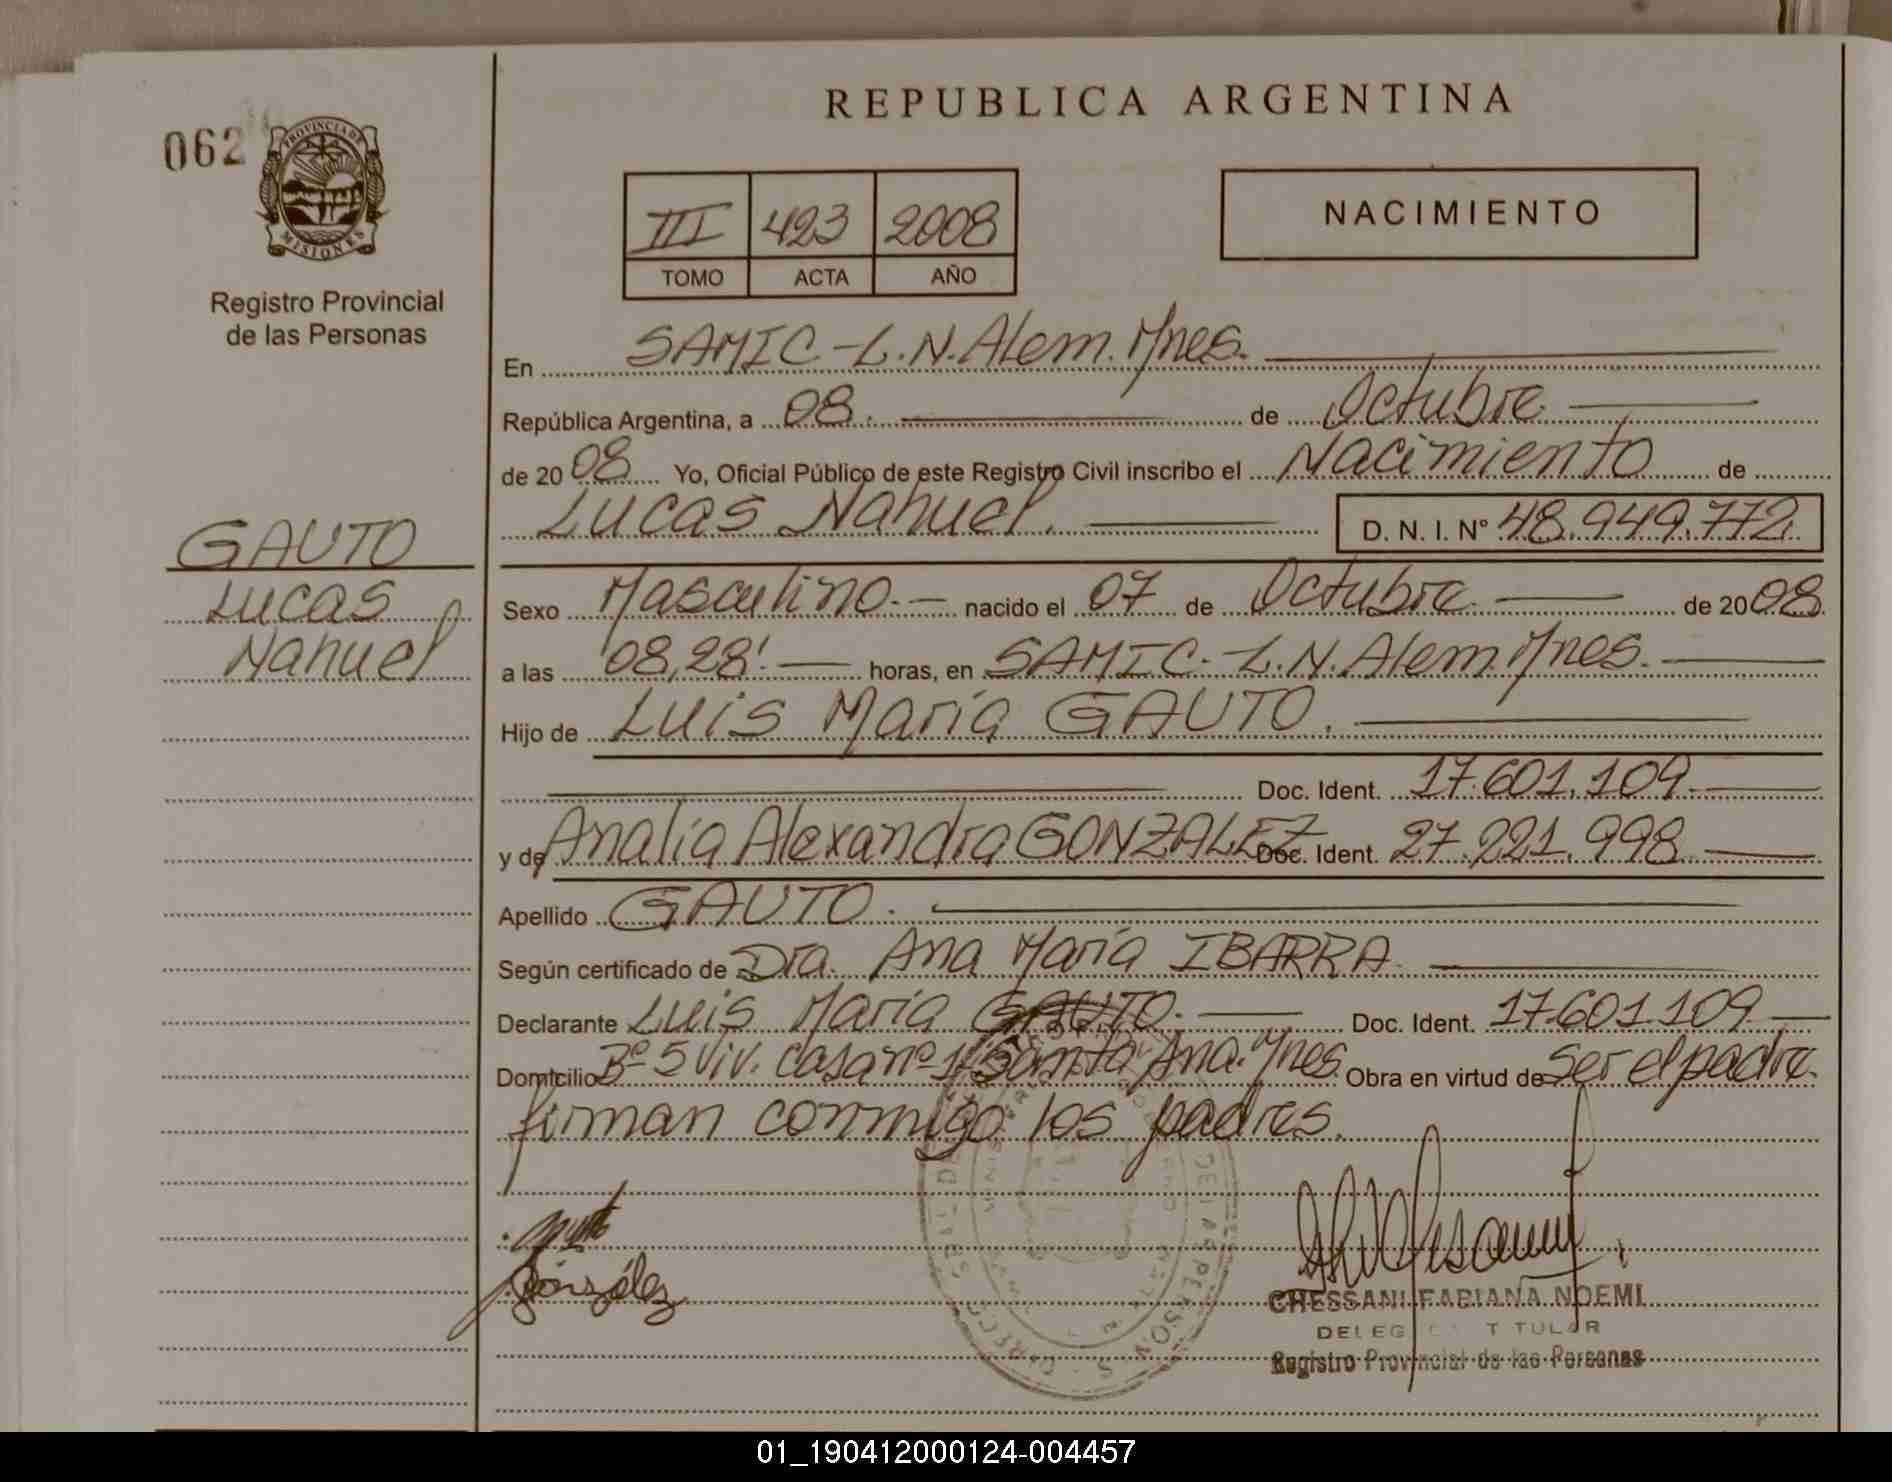 REPUBLICA ARGENTINA
062
PROVINCIA DE
MISIONES
Registro Provincial
de las Personas
III 423 2008
TOMO ACTA AÑO
NACIMIENTO
En SAMIC - L.N. Alem. Mnes.
República Argentina, a 08. de Octubre
de 2008 Yo, Oficial Público de este Registro Civil inscribo el Nacimiento de
Lucas Nahuel. D. N. I. Nº 48.949.772
GAUTO
Lucas
Nahuel
Sexo Masculino.- nacido el 07 de Octubre de 2008
a las 08,28'. horas, en SAMIC. L.N. Alem. Mnes.
Hijo de Luis María GAUTO.
Doc. Ident. 17.601.109
y de Analía Alexandra GONZALEZ Doc. Ident. 27.221.998
Apellido GAUTO.
Según certificado de Dra. Ana María IBARRA
Declarante Luis María GAUTO. Doc. Ident. 17.601.109
Domicilio Bº 5 Viv. Casa nº 1 Santa Ana. Mnes. Obra en virtud de Ser el padre.
firman conmigo los padres.
González
CHESSANI FABIANA NOEMI
DELEGADA TITULAR
Registro Provincial de las Personas
01_190412000124-004457